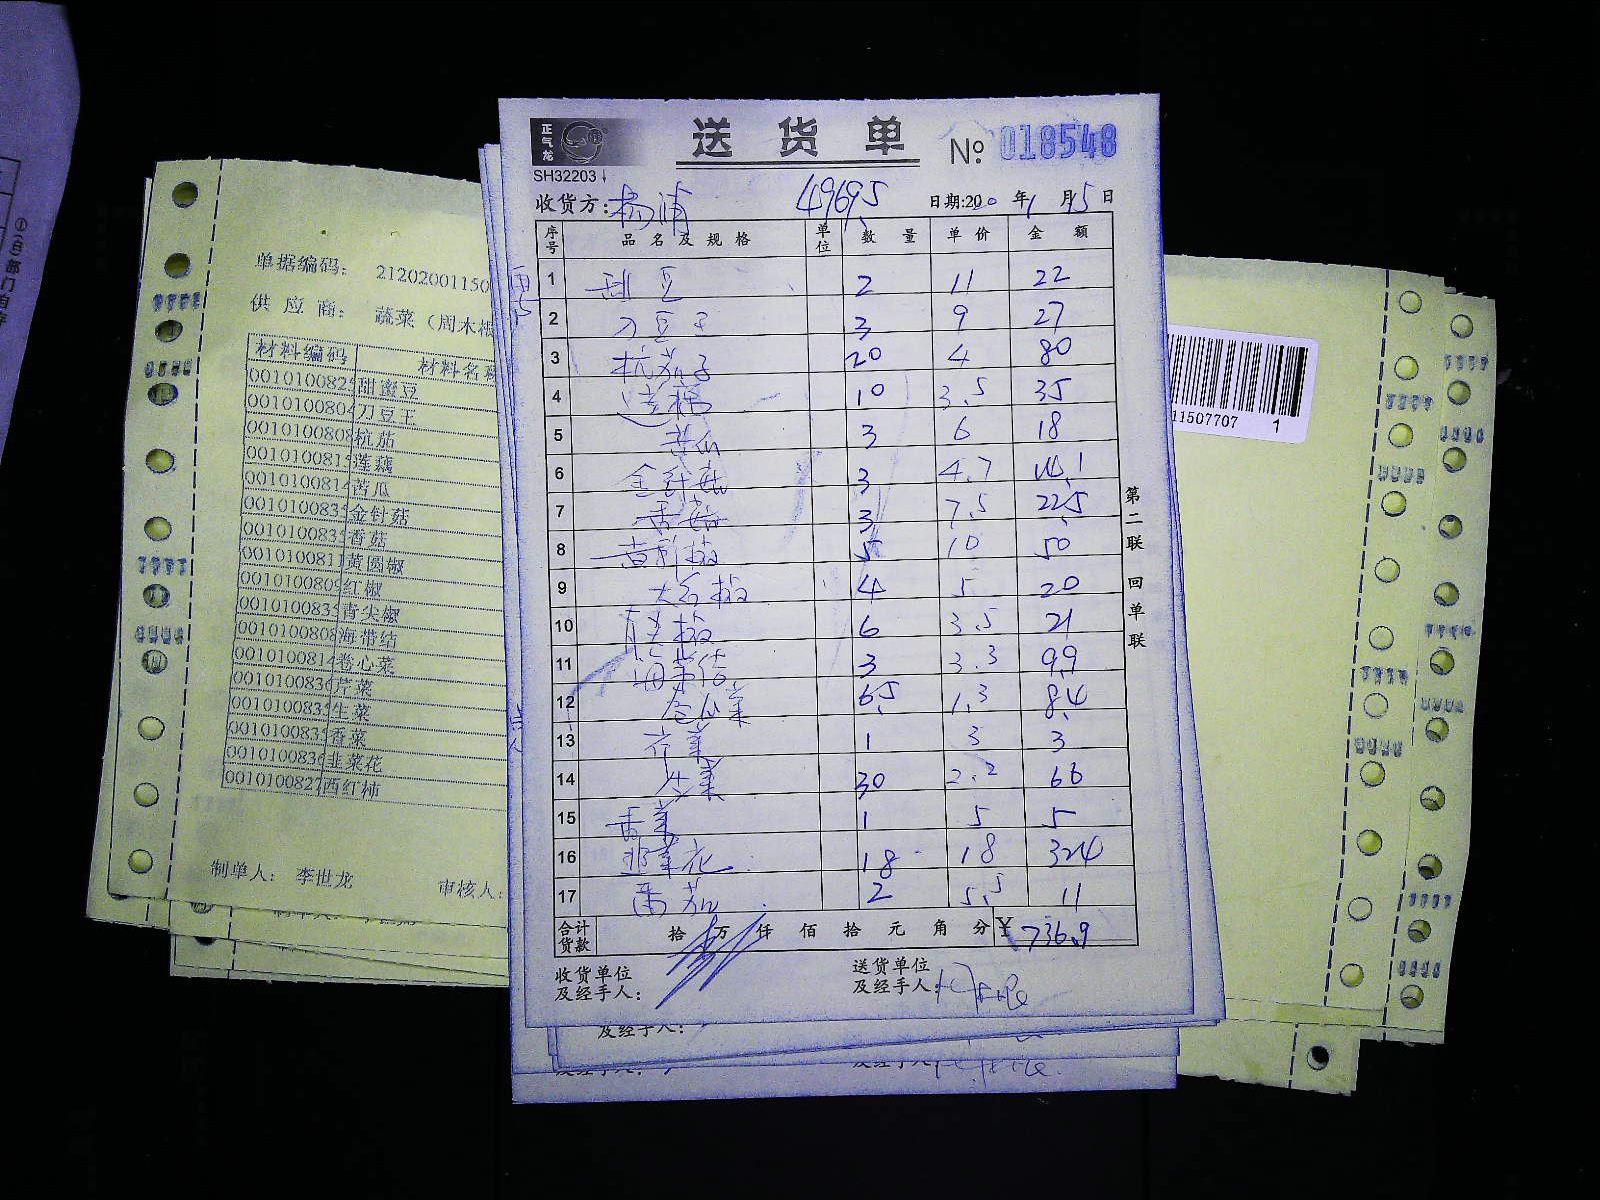 正气龙
送货单
№ 018548
SH32203
收货方: 杨浦 49695 日期:2020年1月15日
序号 品名及规格 单位 数量 单价 金额
1 甜豆 2 11 22
2 刀豆王 3 9 27
3 杭茄子 20 4 80
4 莲藕 10 3.5 35
5 苦瓜 3 6 18
6 金针菇 3 4.7 14.1
7 香菇 3 7.5 22.5
8 黄彩椒 5 10 50
9 大红椒 4 5 20
10 青尖椒 6 3.5 21
11 海带结 3 3.3 9.9
12 卷心菜 6.5 1.3 8.4
13 芹菜 1 3 3
14 生菜 30 2.2 66
15 香菜 1 5 5
16 韭菜花 18 18 324
17 番茄 2 5.5 11
合计货款 拾 万 仟 佰 拾 元 角 分 ¥ 736.9
收货单位及经手人:
送货单位及经手人:
第二联 回单联
及经手人:
单据编码: 21202001150
供应商: 蔬菜（周木根
材料编码 材料名称
0010100825 甜蜜豆
0010100804 刀豆王
0010100808 杭茄
0010100815 莲藕
0010100814 苦瓜
0010100835 金针菇
0010100835 香菇
0010100811 黄圆椒
0010100809 红椒
0010100835 青尖椒
0010100808 海带结
0010100814 卷心菜
0010100836 芹菜
0010100835 生菜
0010100835 香菜
0010100836 韭菜花
0010100827 西红柿
制单人: 李世龙 审核人:
11507707 1